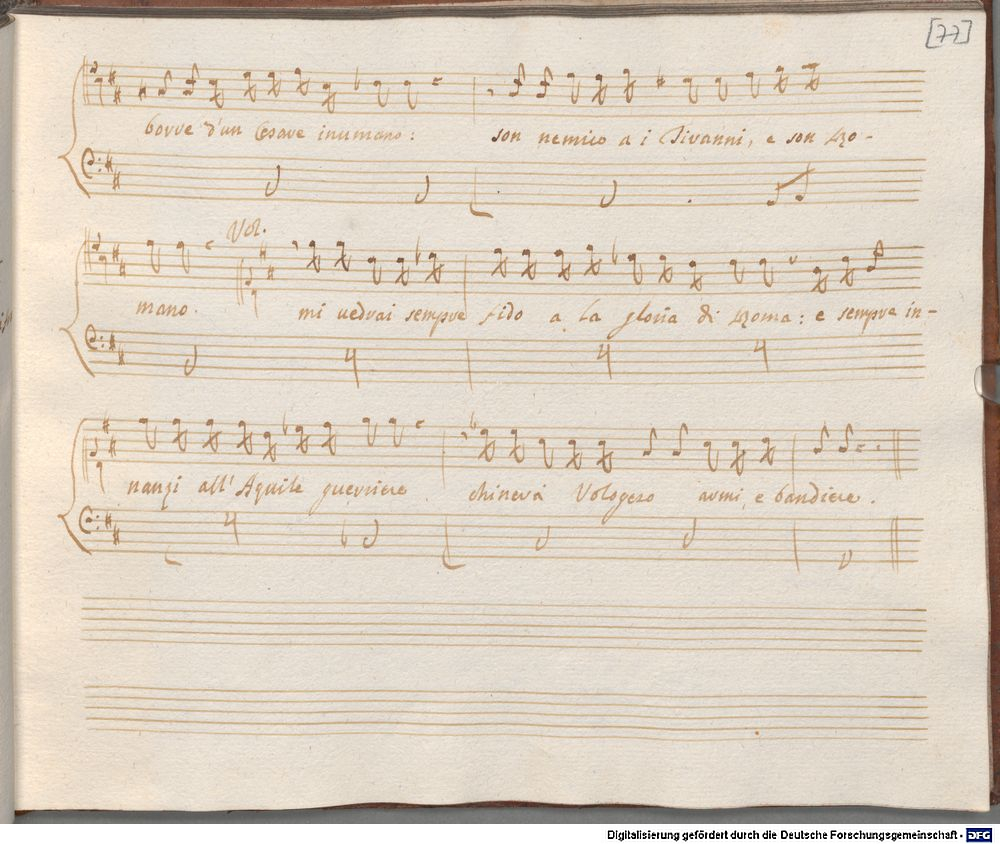 [77]
borre d'un Cesare inumano: son nemico a i Tiranni, e son Ro-
Vol.
mano. mi vedrai sempre fido a la gloria di Roma: e sempre in-
nanzi all'Aquile guerriere chinerà Vologeso armi, e bandiere.
Digitalisierung gefördert durch die Deutsche Forschungsgemeinschaft - DFG